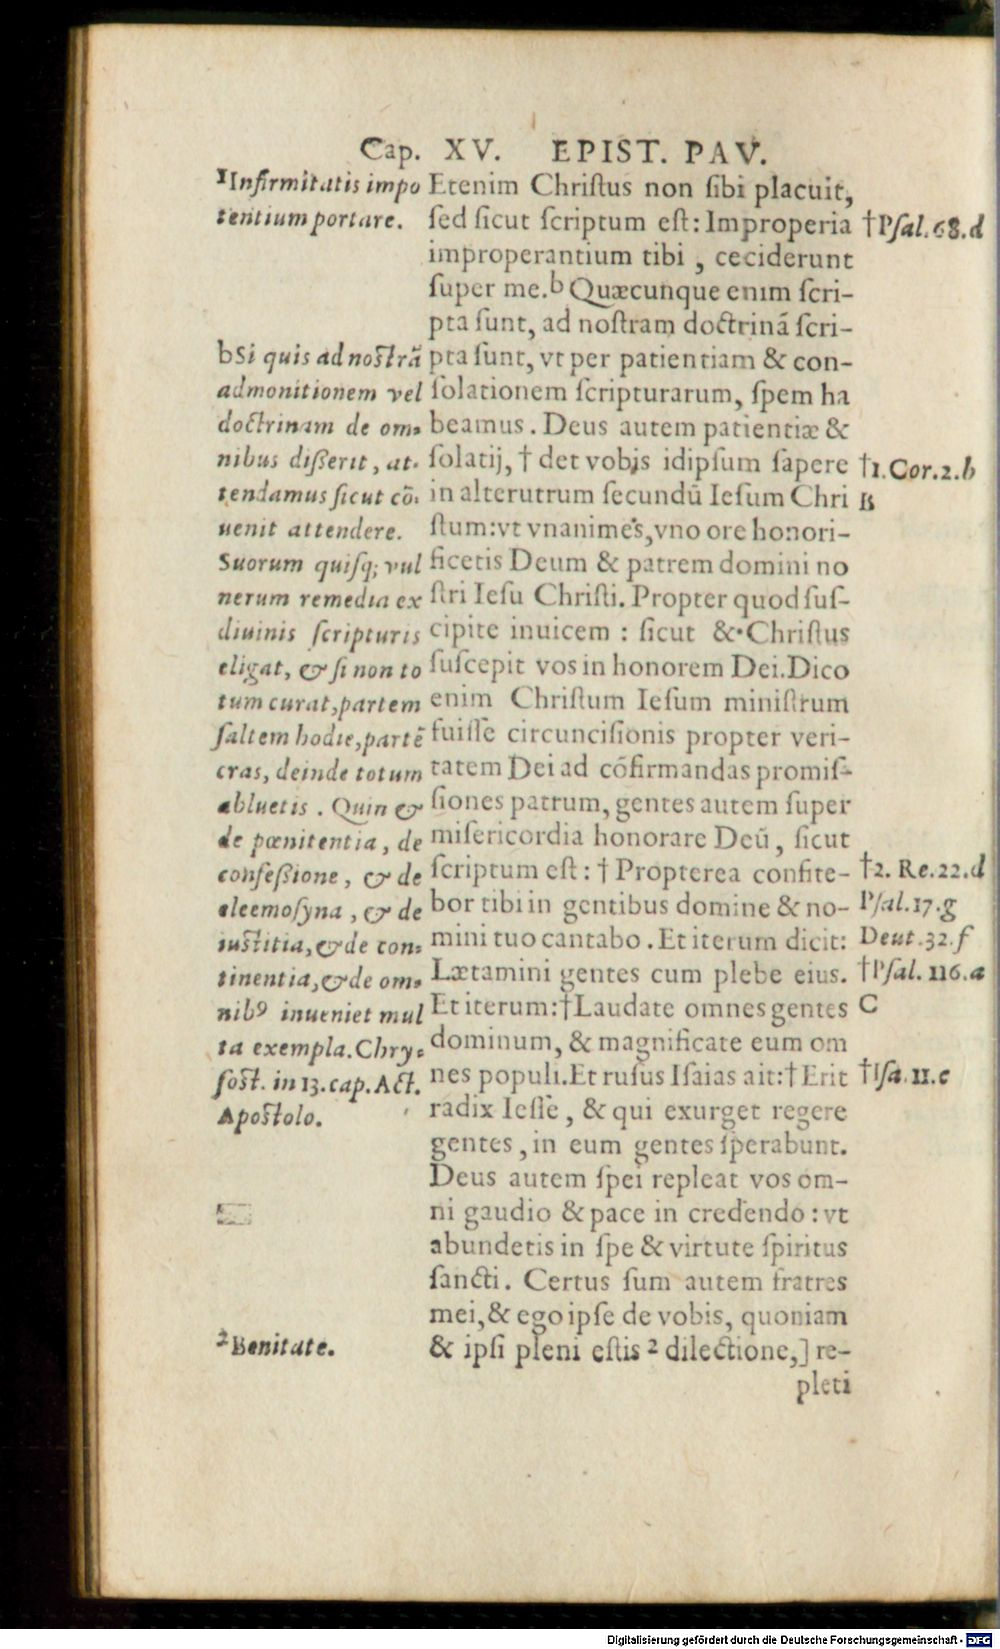 Cap. XV. EPIST. PAV.
¹Infirmitatis impo
tentium portare.
bSi quis ad nostrã
admonitionem vel
doctrinam de om-
nibus disserit, at-
tendamus sicut cō-
uenit attendere.
Suorum quisq; vul
nerum remedia ex
diuinis scripturis
eligat, & si non to
tum curat, partem
saltem hodie, partẽ
cras, deinde totum
abluetis. Quin &
de pœnitentia, de
confessione, & de
eleemosyna, & de
iustitia, & de con-
tinentia, & de om-
nibꝰ inueniet mul
ta exempla. Chry-
sost. in 13. cap. Act.
Apostolo.
²Bonitate.
Etenim Christus non sibi placuit,
sed sicut scriptum est: Improperia
improperantium tibi, ceciderunt
super me. b Quæcunque enim scri-
pta sunt, ad nostram doctrinã scri-
pta sunt, vt per patientiam & con-
solationem scripturarum, spem ha
beamus. Deus autem patientiæ &
solatij, † det vobis idipsum sapere
in alterutrum secundū Iesum Chri
stum: vt vnanimes, vno ore honori-
ficetis Deum & patrem domini no
stri Iesu Christi. Propter quod sus-
cipite inuicem: sicut & Christus
suscepit vos in honorem Dei. Dico
enim Christum Iesum ministrum
fuisse circuncisionis propter veri-
tatem Dei ad cōfirmandas promis-
siones patrum, gentes autem super
misericordia honorare Deū, sicut
scriptum est: † Propterea confite-
bor tibi in gentibus domine & no-
mini tuo cantabo. Et iterum dicit:
Lætamini gentes cum plebe eius.
Et iterum: † Laudate omnes gentes
dominum, & magnificate eum om
nes populi. Et rusus Isaias ait: † Erit
radix Iesse, & qui exurget regere
gentes, in eum gentes sperabunt.
Deus autem spei repleat vos om-
ni gaudio & pace in credendo: vt
abundetis in spe & virtute spiritus
sancti. Certus sum autem fratres
mei, & ego ipse de vobis, quoniam
& ipsi pleni estis ² dilectione,] re-
pleti
†Psal. 68. d
†1. Cor. 2. b
B
†2. Re. 22. d
Psal. 17. g
Deut. 32. f
†Psal. 116. a
C
†Isa. 11. c
Digitalisierung gefördert durch die Deutsche Forschungsgemeinschaft - DFG